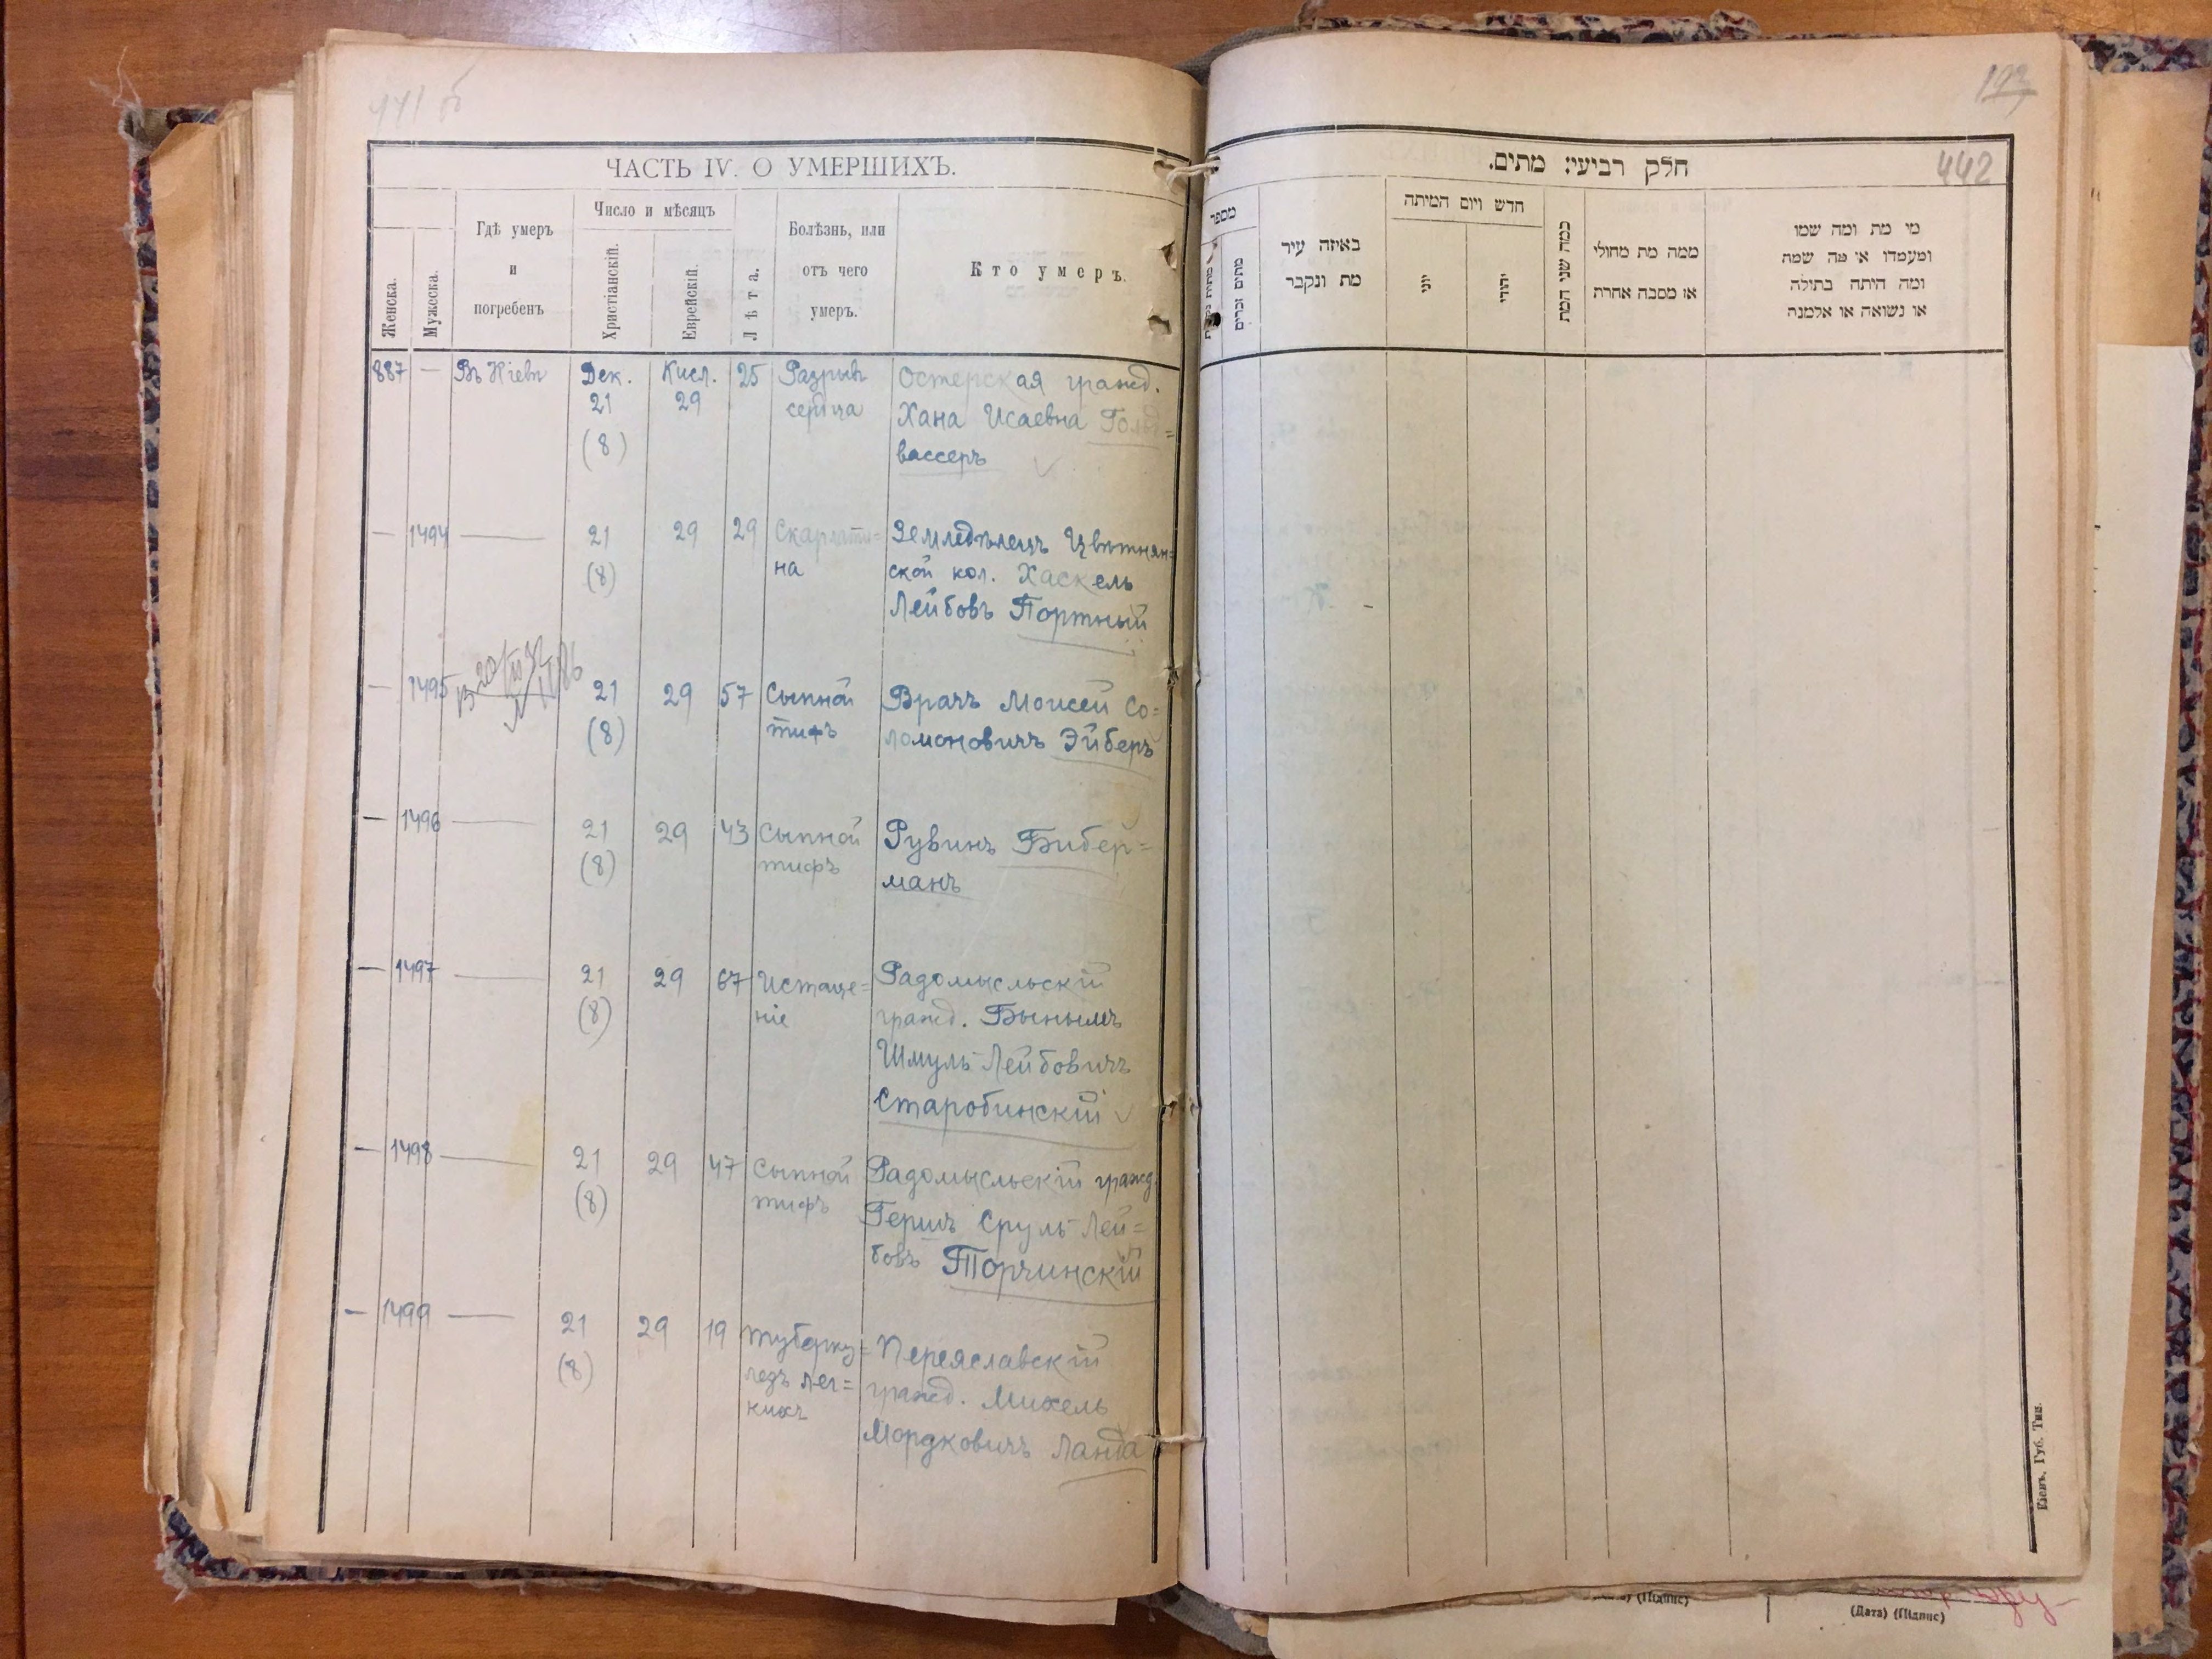 441 б
ЧАСТЬ IV. О УМЕРШИХЪ.
Женска.
Мужеска.
Гдѣ умеръ
и
погребенъ
Число и мѣсяцъ
Христіанскій.
Еврейскій.
Лѣта.
Болѣзнь, или
отъ чего
умеръ.
Кто умеръ.
887 — Въ Кіевѣ Дек. Кисл. 25 Разрывъ Остерская гражд.
21 29 сердца Хана Исаевна Голь=
(8) вассеръ
— 1494 — 21 29 29 Скарлати= Земледѣлецъ Цвѣтнян=
(8) на ской кол. Хаскель
Лейбовъ Портный
— 1495 21 29 57 Сыпной Врачъ Моисей Со=
(8) тифъ ломоновичъ Эйберъ
— 1496 — 21 29 43 Сыпной Рувинъ Бибер=
(8) тифъ манъ
— 1497 — 21 29 67 Истоще= Радомысльскій
(8) ніе гражд. Бынымъ
Шмуль-Лейбовичъ
Старобинскій
— 1498 — 21 29 47 Сыпной Радомысльскій гражд.
(8) тифъ Гершъ Сруль-Лей=
бовъ Торчинскій
— 1499 — 21 29 19 Туберку= Переяславскій
(8) лезъ лег= гражд. Михель
кихъ Мордковичъ Ланда
442
חלק רביעי: מתים.
מספר
מתים זכרים
באיזה עיר
מת ונקבר
חדש ויום המיתה
יוני
יהודי
כמה שני המת
ממה מת מחולי
או מסבה אחרת
מי מת ומה שמו
ומעמדו אי מה שמת
ומה היתה בתולה
או נשואה או אלמנה
Кіевъ, Губ. Тип.
(Підпис)
(Дата) (Підпис)